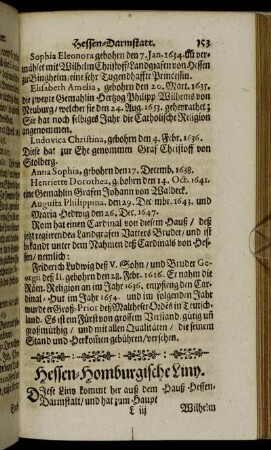 Hessen-Darmstatt. 153
Sophia Eleonora gebohren den 7. Jan. 1634.
mählet mit Wilhelm Christoff Landgrafen von Hessen
zu Bingheim, eine sehr Tugendhaffte Princessin.
Elisabeth Amelia, gebohren den 20. Mart. 1635.
die zweyte Gemahlin Hertzog Philipp Wilhelms von
Neuburg / welcher sie den 24. Aug. 1653. geheyrathet;
Sie hat noch selbiges Jahr die Catholische Religion
angenommen.
Ludovica Christina, gebohren den 4. Febr. 1636.
Diese hat zur Ehe genommen Graf Christoff von
Stolberg.
Anna Sophia, gebohren den 17. Decemb. 1638.
Henriette Dorothea, gebohren den 14. Oct. 1641.
eine Gemahlin Grafen Johann von Waldeck.
Augusta Philippina. den 29. Decembr. 1643. und
Maria Hedwig den 26. Dec. 1647.
Rom hat einen Cardinal von diesem Hauß / deß
jetzt regierenden Landgrafen Vatters Bruder / und ist
bekandt unter dem Nahmen deß Cardinals von Hes-
sen / nemlich:
Friderich Ludwig deß V. Sohn / und Bruder Ge-
orgs deß II. gebohren den 28. Febr. 1616. Er nahm die
Röm. Religion an im Jahr 1636. empfieng den Car-
dinal-Hut im Jahr 1654. und im folgenden Jahr
wurde er Groß-Prior deß Maltheser-Ordens in Teutsch-
land. Es ist ein Fürst von grossem Verstand / gütig und
großmüthig / und mit allen Qualitäten / die seinem
Stand und Herkomen gebühren / versehen.
Hessen-Homburgische Liny.
Diese Liny kommt her auß dem Hauß Hessen-
Darmstatt / und hat zum Haupt
L iij Wilhelm